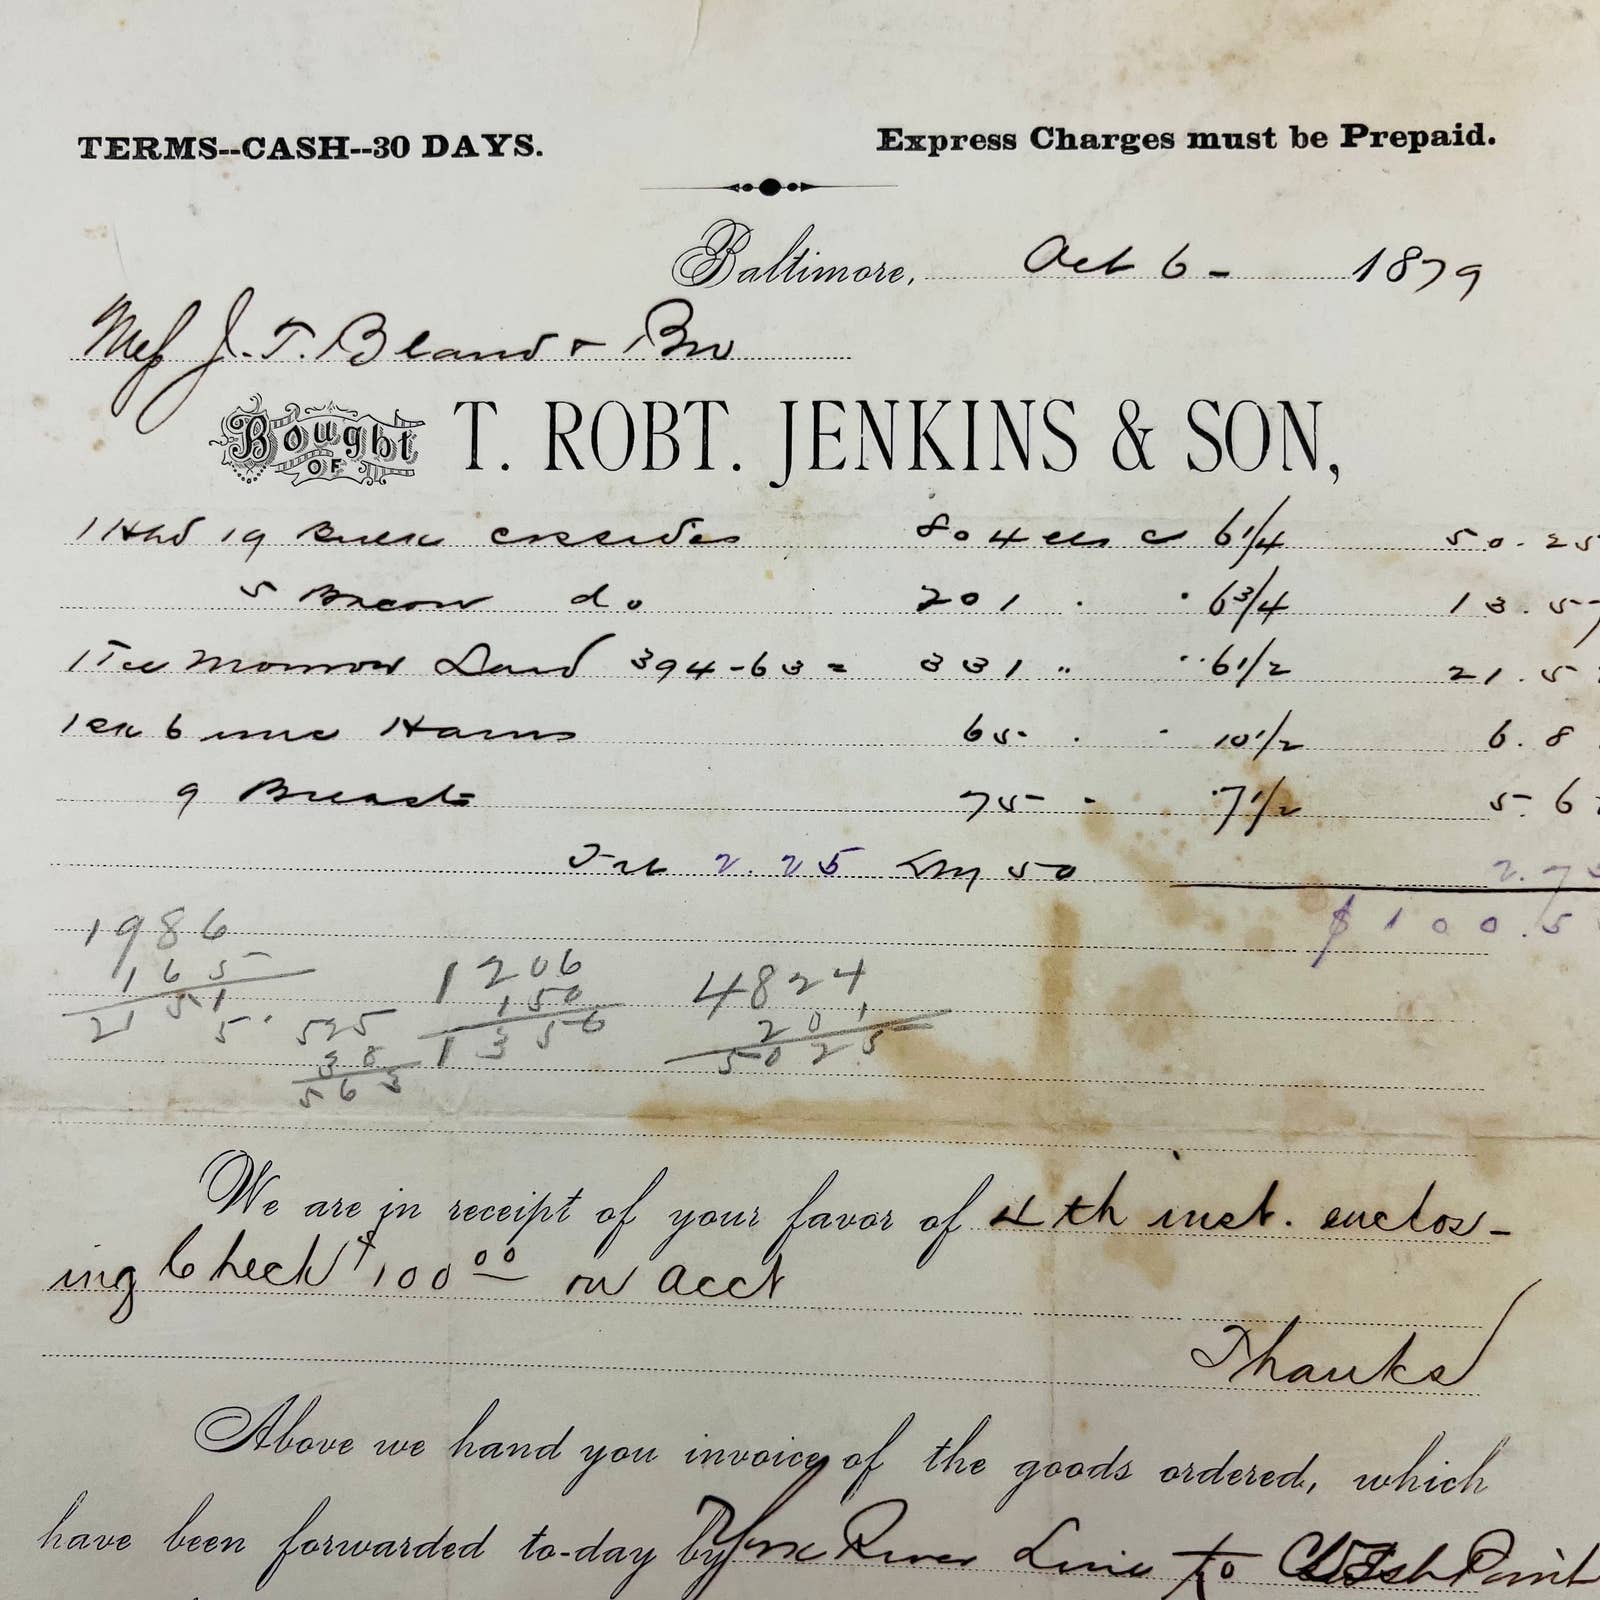 TERMS--CASH--30 DAYS. Express Charges must be Prepaid.
Baltimore, Oct 6 - 1879
Mess J. T. Bland & Bro
Bought OF T. ROBT. JENKINS & SON,
1 Hhd 19 Bulk 804 6 1/4 50.25
5 Bacon do 201 " " 6 3/4 13.57
1 Tce Lard 394-63 = 331 " " 6 1/2 21.5
6 Hams 65 . . 10 1/2 6.8
9 Breasts 75 - 7 1/2 5.6
2.25 50 2.75
$100.5
1986
165
2151
5. 525
38
563
1206
150
1356
4824
201
5025
We are in receipt of your favor of 4th inst. enclos-
ing Check $100 00 on acct
Thanks
Above we hand you invoice of the goods ordered, which
have been forwarded to-day by York River Line to Point